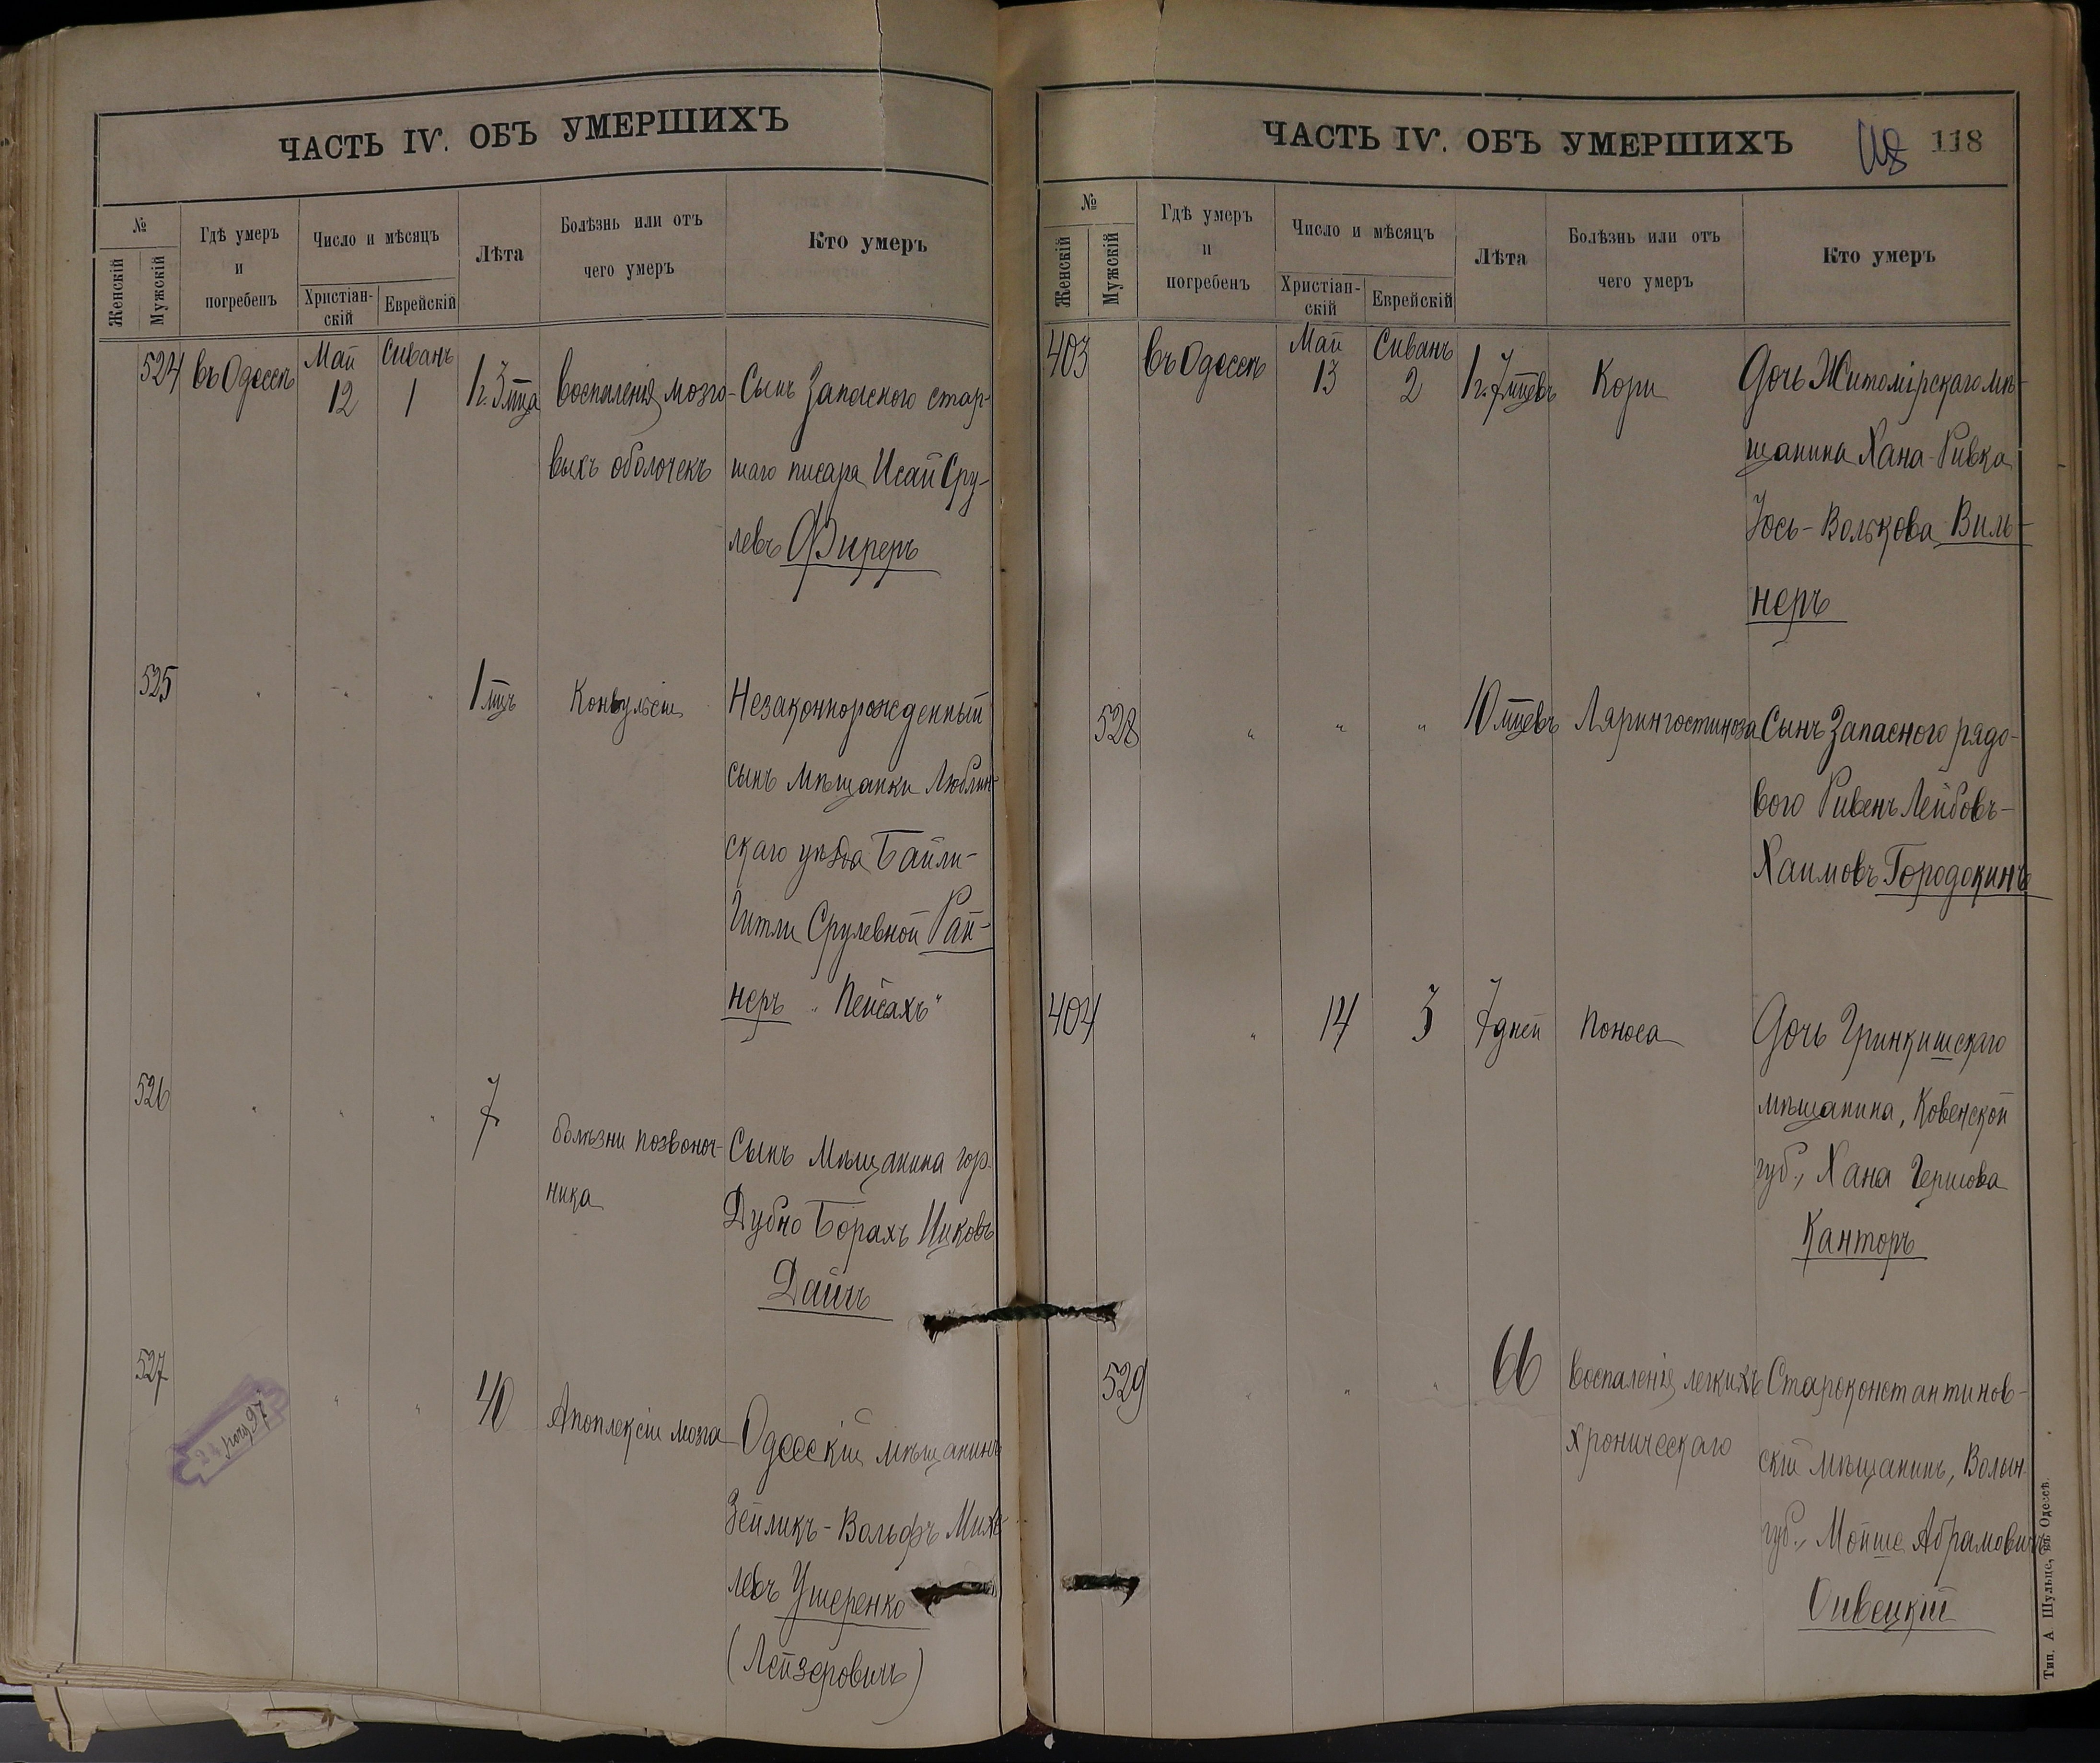 ЧАСТЬ IV. ОБЪ УМЕРШИХЪ
№
Женскій
Мужскій
Гдѣ умеръ
и
погребенъ
Число и мѣсяцъ
Христіан-
скій
Еврейскій
Лѣта
Болѣзнь или отъ
чего умеръ
Кто умеръ
524
въ Одессѣ
Май
12
Сиванъ
1
1 г. 3 мца
воспаленія мозго-
выхъ оболочекъ
Сынъ Запасного стар-
шаго писаря Исай Сру-
левъ Фиреръ
525
"
"
"
1 мцъ
Конвульсіи
Незаконнорожденный
сынъ мѣщанки Люблин-
скаго уѣзда Байли-
Гитли Срулевной Рай-
неръ "Пейсахъ"
526
"
"
"
7
болѣзни позвоноч-
ника
Сынъ Мѣщанина гор.
Дубно Борахъ Ицковъ
Дайчъ
527
"
"
40
Апоплексіи мозга
Одесскій мѣщанинъ
Зейликъ-Вольфъ Михе
левъ Ушеренко
(Лейзеровичъ)
ЧАСТЬ IV. ОБЪ УМЕРШИХЪ
118
118
№
Женскій
Мужскій
Гдѣ умеръ
и
погребенъ
Число и мѣсяцъ
Христіан-
скій
Еврейскій
Лѣта
Болѣзнь или отъ
чего умеръ
Кто умеръ
403
въ Одессѣ
Май
13
Сиванъ
2
1 г. 7 мцевъ
Кори
Дочь Житомірскаго мѣ-
щанина Хана-Ривка
Іось-Волькова Виль-
неръ
528
"
"
"
10 мцевъ
Лярингостиноза
Сынъ Запасного рядо-
вого Ривенъ Лейбовъ-
Хаимовъ Городокинъ
404
"
14
3
7 дней
Поноса
Дочь Гринкишскаго
мѣщанина, Ковенской
губ., Хана Гершова
Канторъ
529
"
"
"
66
воспаленія легкихъ
хроническаго
Староконстантинов-
скій мѣщанинъ, Волын.
губ., Мойше Абрамовичъ
Сивецкій
Тип. А Шульце, въ Одессѣ.